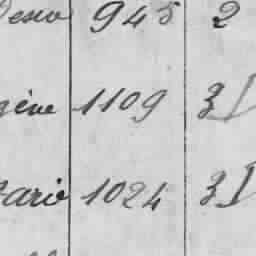 945 2
gène 1109 3
ario 1024 3